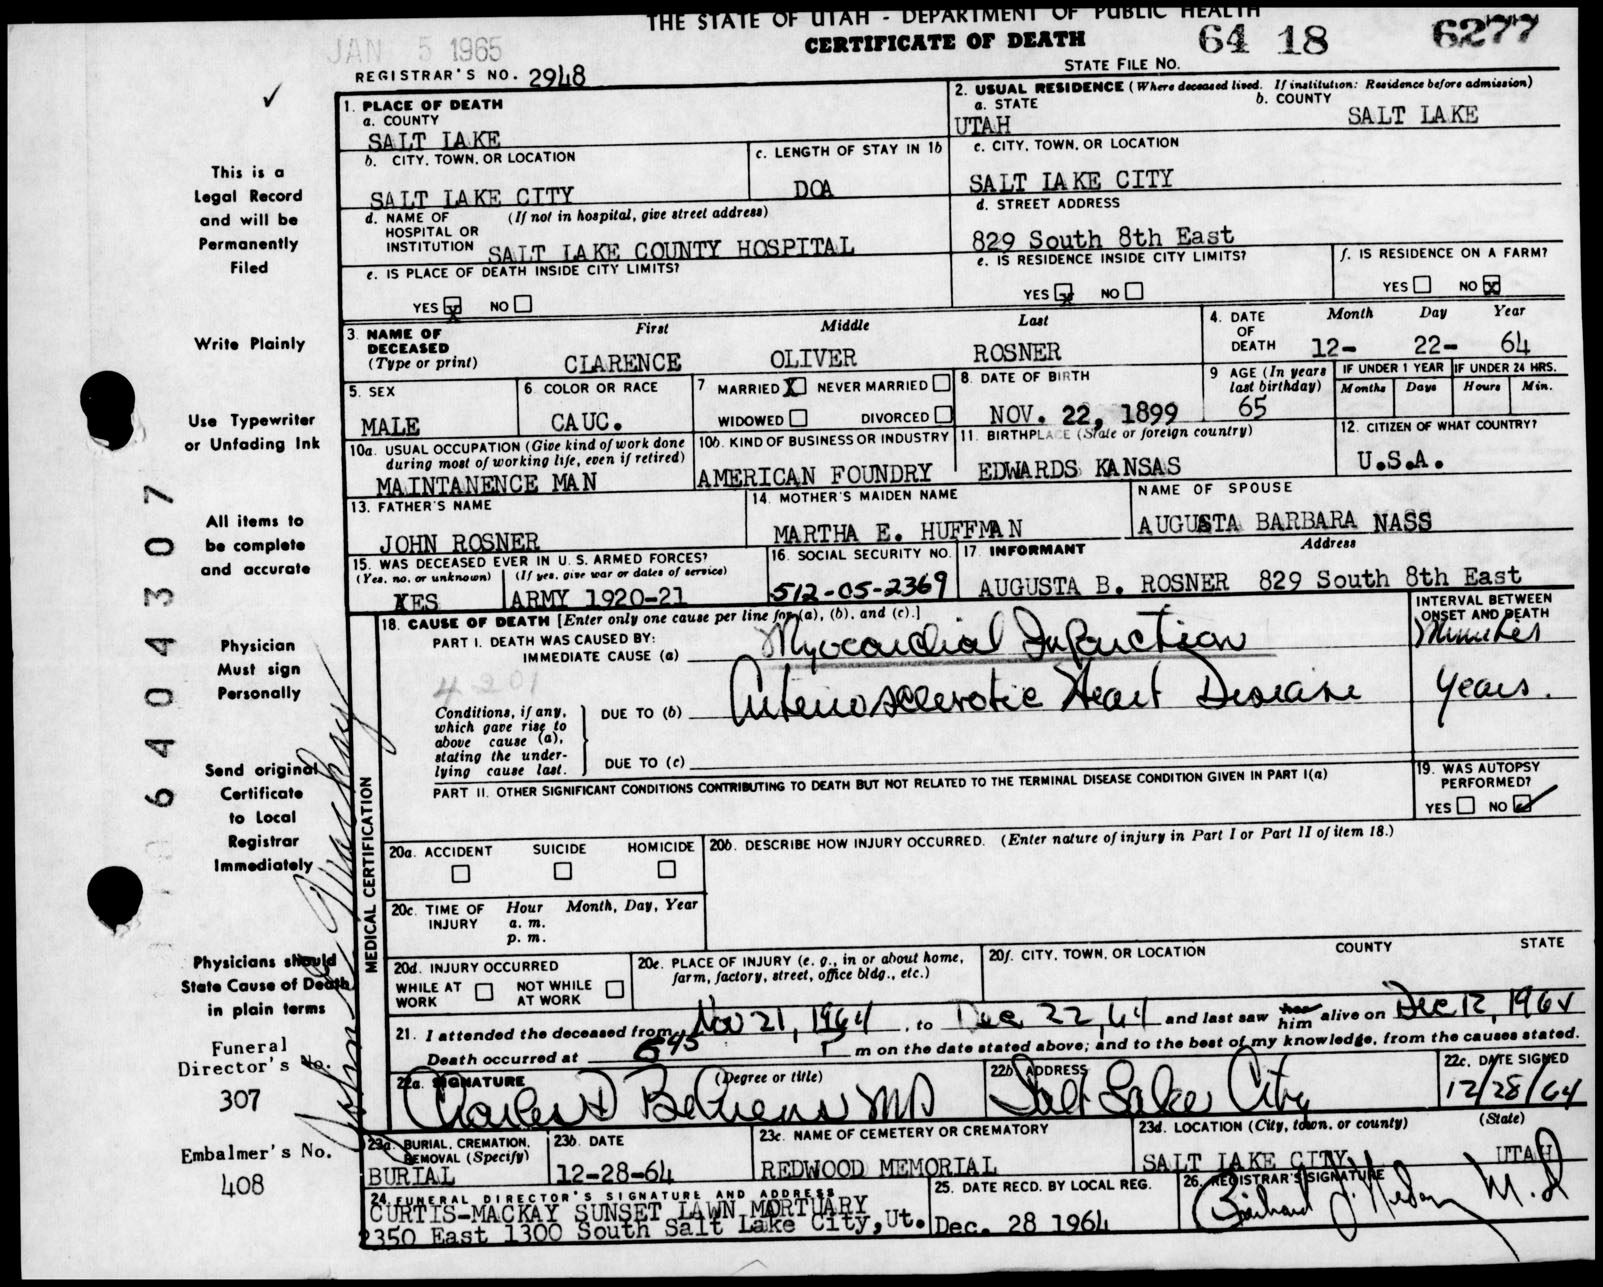 THE STATE OF UTAH - DEPARTMENT OF PUBLIC HEALTH
CERTIFICATE OF DEATH
JAN 5 1965
64 18 6277
STATE FILE NO.
REGISTRAR'S NO. 2948
1. PLACE OF DEATH
a. COUNTY
SALT LAKE
2. USUAL RESIDENCE (Where deceased lived. If institution: Residence before admission)
a. STATE
UTAH
b. COUNTY
SALT LAKE
b. CITY, TOWN, OR LOCATION
SALT LAKE CITY
c. LENGTH OF STAY IN 1b
DOA
c. CITY, TOWN, OR LOCATION
SALT LAKE CITY
d. NAME OF HOSPITAL OR INSTITUTION (If not in hospital, give street address)
SALT LAKE COUNTY HOSPITAL
d. STREET ADDRESS
829 South 8th East
e. IS PLACE OF DEATH INSIDE CITY LIMITS?
YES X NO
e. IS RESIDENCE INSIDE CITY LIMITS?
YES X NO
f. IS RESIDENCE ON A FARM?
YES NO X
3. NAME OF DECEASED (Type or print)
First Middle Last
CLARENCE OLIVER ROSNER
4. DATE OF DEATH
Month Day Year
12- 22- 64
5. SEX
MALE
6. COLOR OR RACE
CAUC.
7 MARRIED X NEVER MARRIED
WIDOWED DIVORCED
8. DATE OF BIRTH
NOV. 22, 1899
9 AGE (In years last birthday)
65
IF UNDER 1 YEAR
Months Days
IF UNDER 24 HRS.
Hours Min.
10a. USUAL OCCUPATION (Give kind of work done during most of working life, even if retired)
MAINTANENCE MAN
10b. KIND OF BUSINESS OR INDUSTRY
AMERICAN FOUNDRY
11. BIRTHPLACE (State or foreign country)
EDWARDS KANSAS
12. CITIZEN OF WHAT COUNTRY?
U.S.A.
13. FATHER'S NAME
JOHN ROSNER
14. MOTHER'S MAIDEN NAME
MARTHA E. HUFFMAN
NAME OF SPOUSE
AUGUSTA BARBARA NASS
15. WAS DECEASED EVER IN U. S. ARMED FORCES?
(Yes, no, or unknown) (If yes, give war or dates of service)
YES ARMY 1920-21
16. SOCIAL SECURITY NO.
512-05-2369
17. INFORMANT Address
AUGUSTA B. ROSNER 829 South 8th East
18. CAUSE OF DEATH [Enter only one cause per line for (a), (b), and (c).]
INTERVAL BETWEEN ONSET AND DEATH
PART I. DEATH WAS CAUSED BY:
IMMEDIATE CAUSE (a) Myocardial Infarction Minutes
4201
Conditions, if any, which gave rise to above cause (a), stating the underlying cause last.
DUE TO (b) Arteriosclerotic Heart Disease Years.
DUE TO (c)
PART II. OTHER SIGNIFICANT CONDITIONS CONTRIBUTING TO DEATH BUT NOT RELATED TO THE TERMINAL DISEASE CONDITION GIVEN IN PART I(a)
19. WAS AUTOPSY PERFORMED?
YES NO ✓
MEDICAL CERTIFICATION
20a. ACCIDENT SUICIDE HOMICIDE
20b. DESCRIBE HOW INJURY OCCURRED. (Enter nature of injury in Part I or Part II of item 18.)
20c. TIME OF INJURY Hour Month, Day, Year
a. m.
p. m.
20d. INJURY OCCURRED
WHILE AT WORK NOT WHILE AT WORK
20e. PLACE OF INJURY (e. g., in or about home, farm, factory, street, office bldg., etc.)
20f. CITY, TOWN, OR LOCATION COUNTY STATE
21. I attended the deceased from Nov 21, 1964, to Dec 22, 64 and last saw her him alive on Dec 12, 1964
Death occurred at 645 P m on the date stated above; and to the best of my knowledge, from the causes stated.
22a. SIGNATURE (Degree or title)
Charles D Behrens MD
22b. ADDRESS
Salt Lake City
22c. DATE SIGNED
12/28/64
23a. BURIAL, CREMATION, REMOVAL (Specify)
BURIAL
23b. DATE
12-28-64
23c. NAME OF CEMETERY OR CREMATORY
REDWOOD MEMORIAL
23d. LOCATION (City, town, or county) (State)
SALT LAKE CITY UTAH
24. FUNERAL DIRECTOR'S SIGNATURE AND ADDRESS
CURTIS-MACKAY SUNSET LAWN MORTUARY
2350 East 1300 South Salt Lake City, Ut.
25. DATE RECD. BY LOCAL REG.
Dec. 28 1964
26. REGISTRAR'S SIGNATURE
M.D
This is a
Legal Record
and will be
Permanently
Filed
Write Plainly
Use Typewriter
or Unfading Ink
All items to
be complete
and accurate
Physician
Must sign
Personally
Send original
Certificate
to Local
Registrar
Immediately
Physicians should
State Cause of Death
in plain terms
Funeral
Director's No.
307
Embalmer's No.
408
6404307